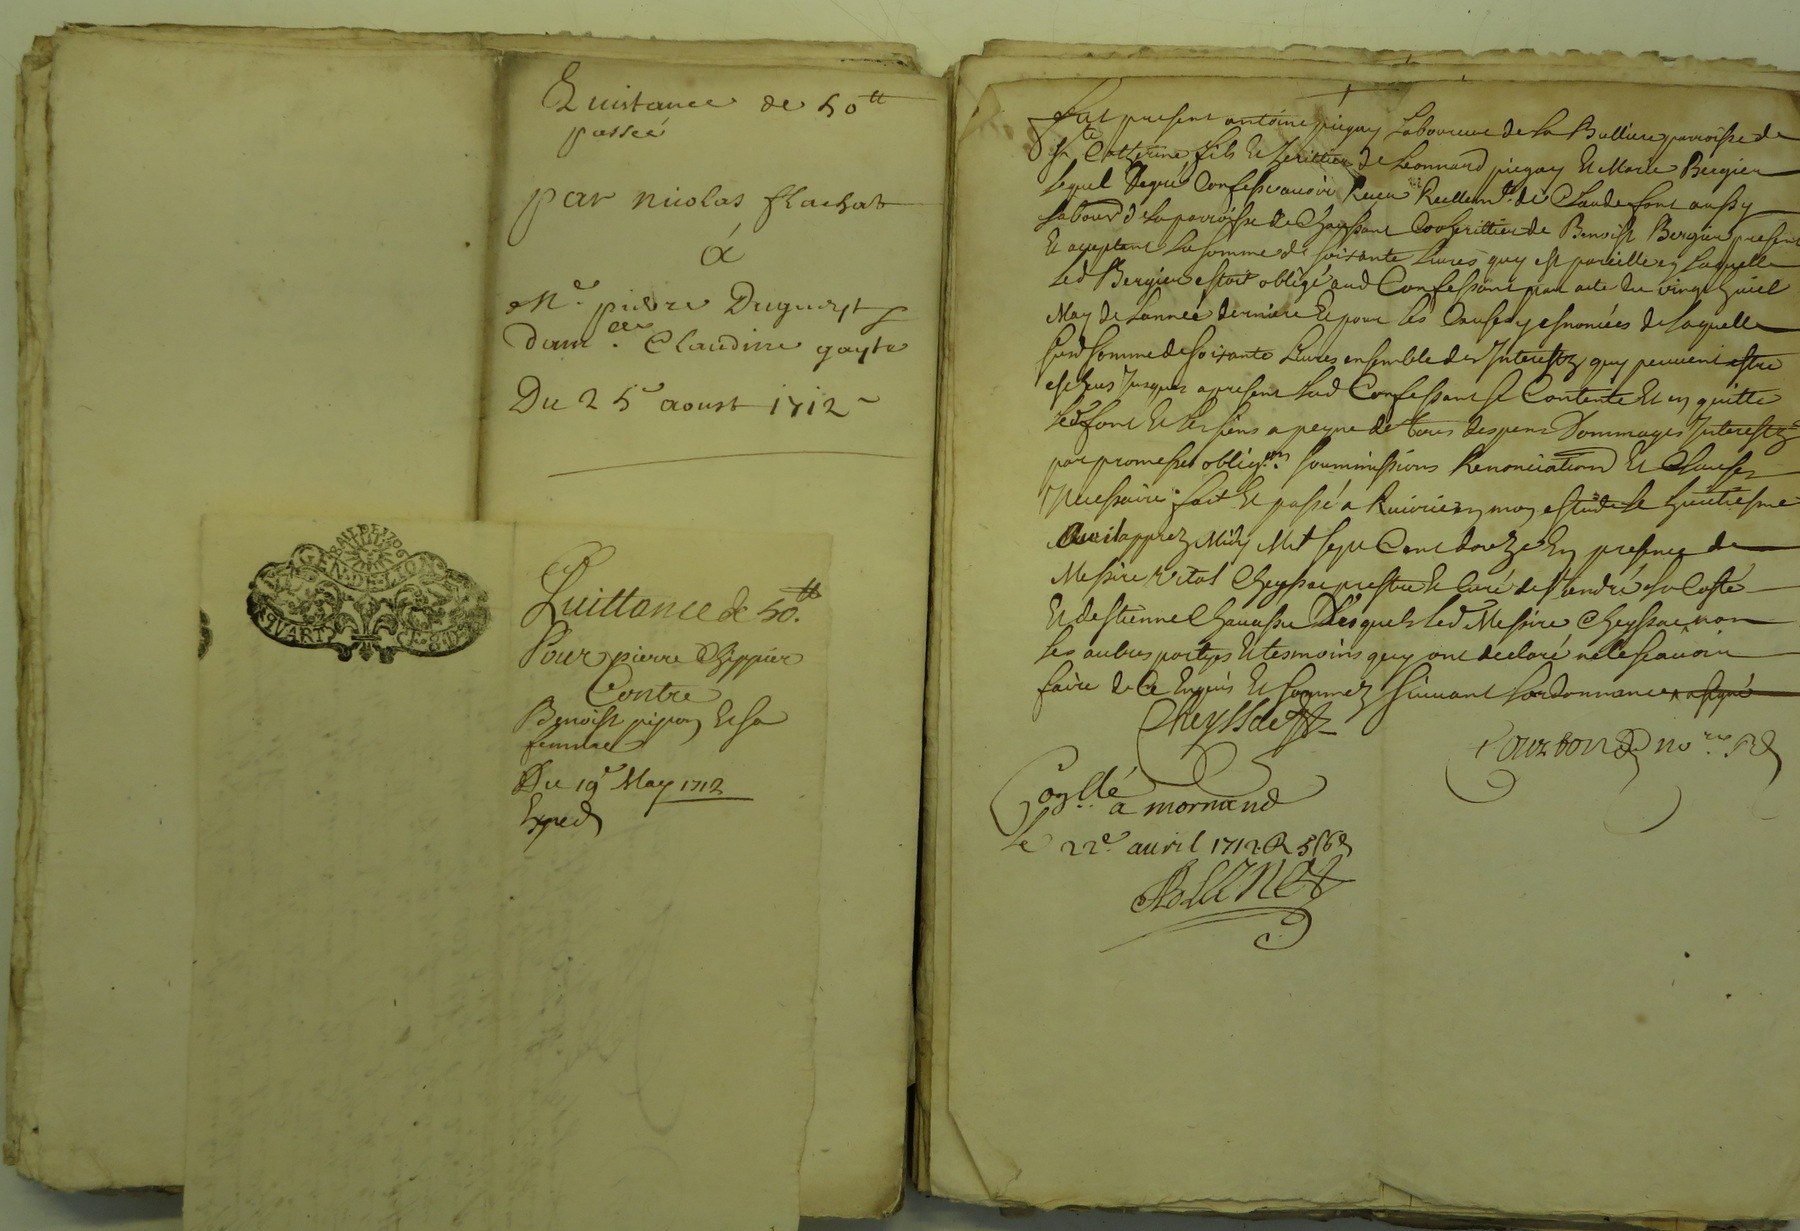 Quistance de 50ᵗᵗ
passée
par nicolas flachat
à
Mᵉ. pierre Dugueyt
damᵉˡˡᵉ Claudine gayte
Du 25ᵉ aoust 1712
BAIL DE 1706
GEN. DE LION
QUART
Quittance de 50.ᵗᵗ
Pour pierre Chippier
Contre
Benoist pipon Et sa
femme
Du 19ᵉ May 1712
Exped
fut present antoine pigay Laboureur de La Bulliere parroisse de
Sᵗᵉ Catherine fils Et heritier de Leonnard pigay Et Marie Bergier
Lequel degré Confesse avoir Receu Reellemᵗ. de Claude font aussy
Labourʳ de La parroisse de Chaussant Cooherittier de Benoist Bergier present
Et aceptant La somme de soixante Livres quy est pareille en Laquelle
Led Bergier estoit obligé aud Confessant par acte du vingt huict
May de Lannée derniere Et pour les Causes y esnoncées de Laquelle
susd somme de soixante Livres ensemble des Interestz quy peuvent estre
escheus Jusques apresent Led Confessant se Contente Et en quitte
Led font Et les siens a peyne de tous despens Dommages Interestz
par promesses obligᵒⁿˢ soummissions Renonciations Et Clauses
Necessaire fait Et passé a Riverie en mon estude Le huitiesme
Avril apprez Midy Mil sept Cent douze En presence de
Messire vital Cheyssac prestre Et Curé de Sᵗ andré La Coste
Et destienne Chavassu Desquels led Messire Cheyssac non
les autres partyes Et tesmoins quy ont declaré ne le scavoir
faire de Ce Enquis Et sommez suivant Lordonnance a signé
Cheyssac
Courbon noʳᵉ Rᵈ
Conᵗˡˡé
a mornand
le 22ᵉ. avril 1712 R 5ˢ 6ᵈ
BLANC